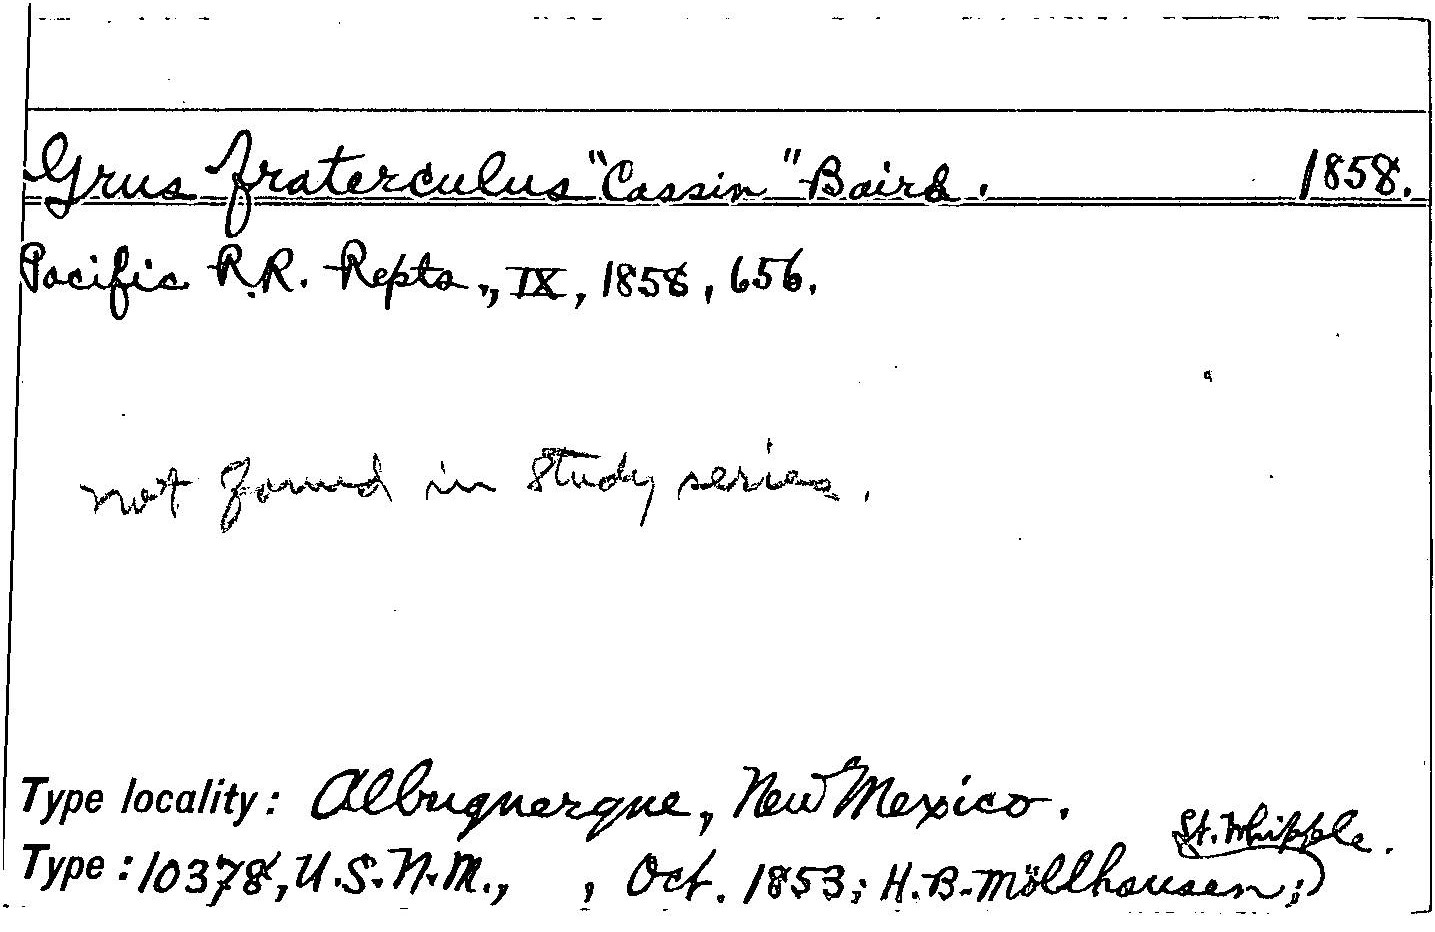 Grus fraterculus "Cassin" Baird. 1858.
Pacific R.R. Repts., IX, 1858, 656.
not found in study series.
Type locality: Albuquerque, New Mexico.
Type: 10378, U.S.N.M., , Oct. 1853; H.B. Möllhausen;
Lt. Whipple.